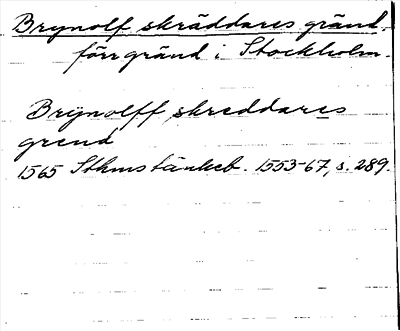 Brynolf skräddares gränd,
förr gränd i Stockholm.
Brÿnolff skreddares
grend
1565 Sthms tänkeb. 1553-67, s. 289.